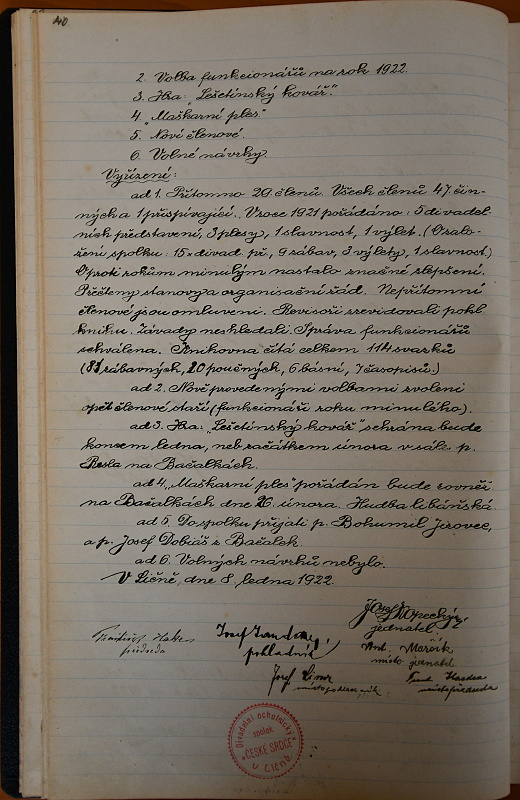 40
2. Volba funkcionářů na rok 1922.
3. Hra: „Lešetínský kovář."
4. „Maškarní ples"
5. Noví členové.
6. Volné návrhy.
Vyřízení:
ad 1. Přítomno 29 členů. Všech členů 47. čin-
ných a 1 přispívající. V roce 1921 pořádáno: 5 divadel-
ních představení, 3 plesy, 1 slavnost, 1 výlet. (Od založ-
žení spolku: 15x divad. př., 9 zábav, 3 výlety, 1 slavnost.)
Oproti rokům minulým nastalo značné zlepšení.
Přečteny stanovy a organisační řád. Nepřítomní
členové jsou omluveni. Revisoři zrevidovali pokl.
knihu. Závady neshledali. Správa funkcionářů
schválena. Knihovna čítá celkem 114 svazků
(81 zábavných, 20 poučných, 6 básní, 7 časopisů.)
ad 2. Nově provedenými volbami zvoleni
opět členové staří (funkcionáři roku minulého).
ad 3. Hra: „Lešetínský kovář" sehrána bude
koncem ledna, neb začátkem února v sále p.
Resla na Bačalkách.
ad 4. „Maškarní ples" pořádán bude rovněž
na Bačalkách dne 26. února. Hudba libáňská.
ad 5. Do spolku přijati p. Bohumil Jírovec,
a p. Josef Dobiáš z Bačalek.
ad 6. Volných návrhů nebylo.
V Ličně, dne 8. ledna 1922.
Josef Kopecký
jednatel.
předseda
Josef
pokladník
Ant.
místojednatel
Josef
místopředseda
Divadelní ochotnický
spolek
„ČESKÉ SRDCE"
v Ličně.